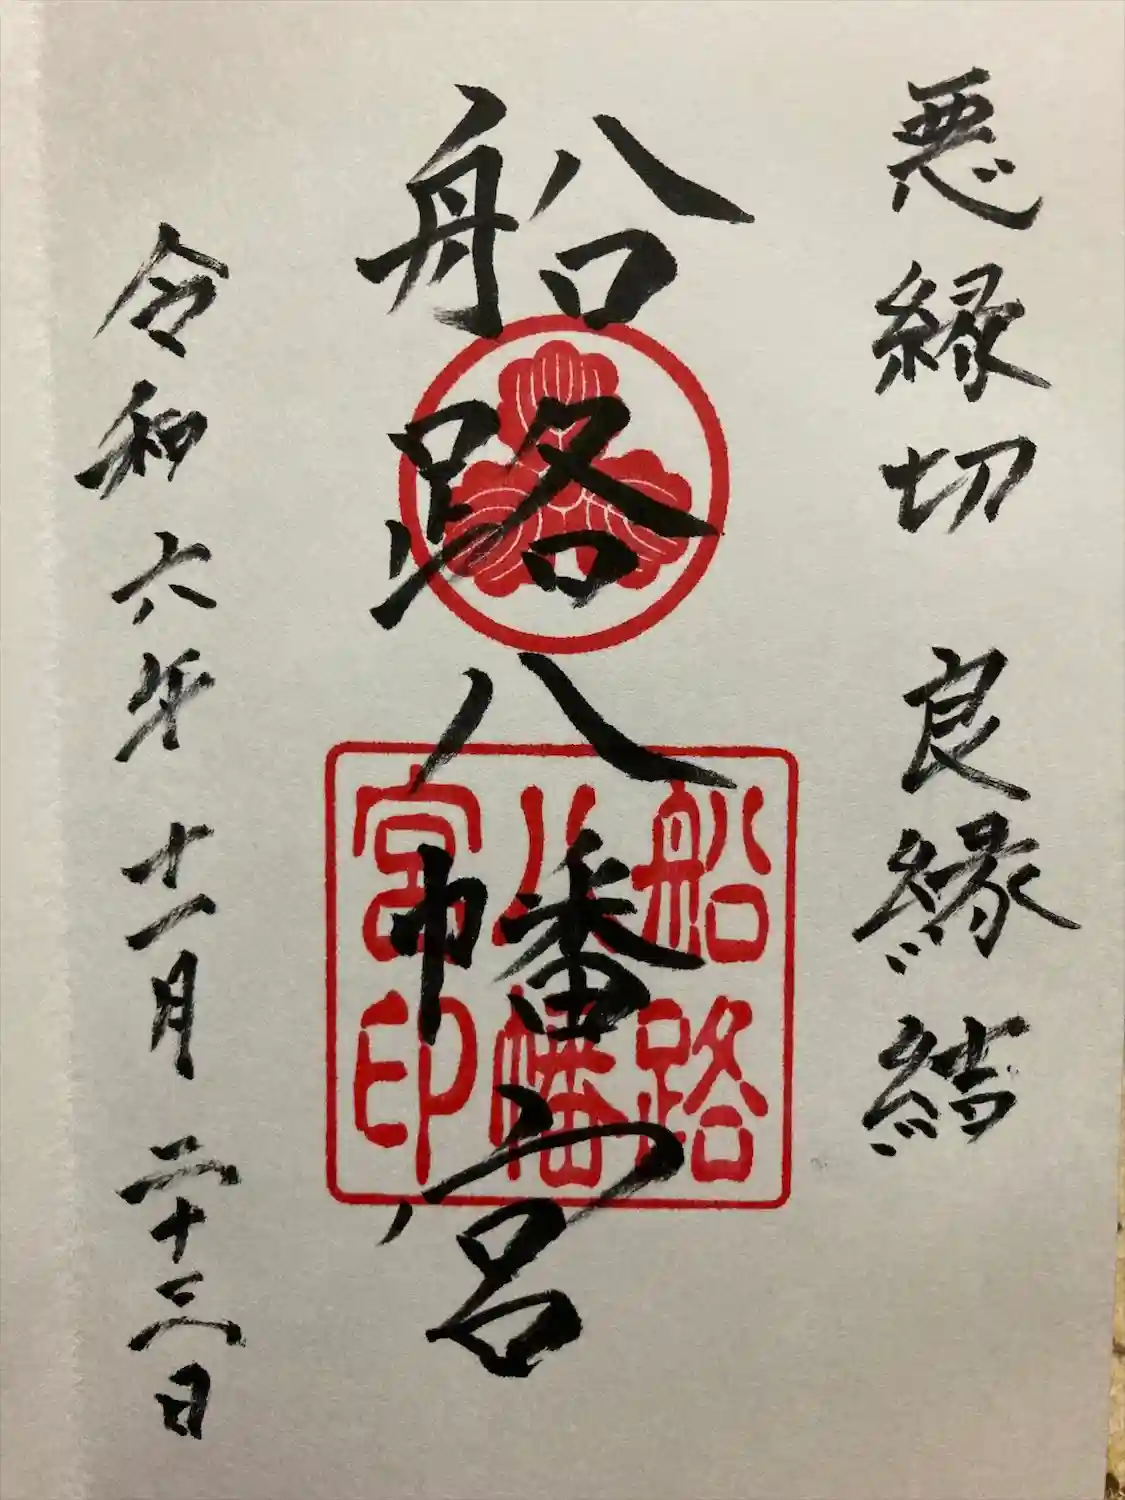 悪縁切 良縁結
船路八幡宮
船路八幡宮印
令和六年十一月二十三日